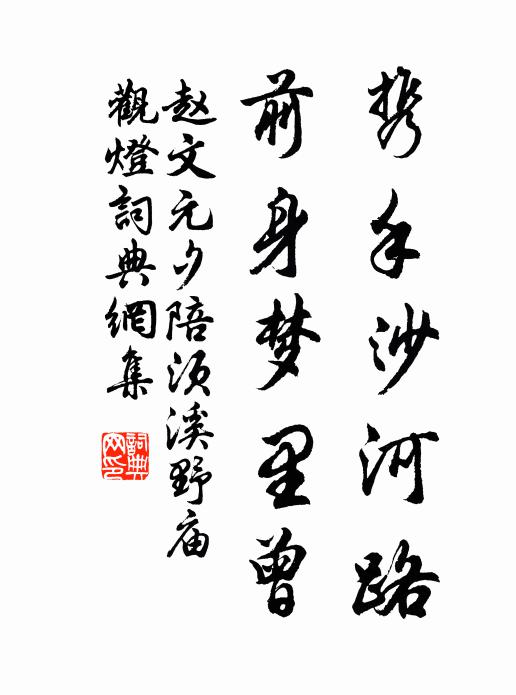 携手沙河路
前身梦里曾
赵文元夕陪须溪野庙
觀燈詞典網集
詞典
网印